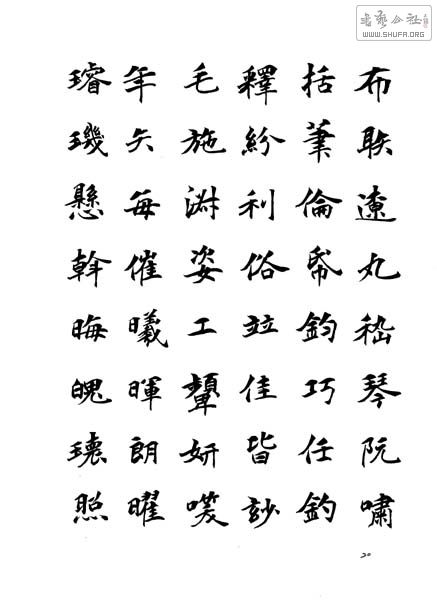 書藝公社
WWW.SHUFA.ORG
布射遼丸嵇琴阮嘯
恬筆倫帋鈞巧任釣
釋紛利俗竝佳皆玅
毛施淑姿工顰妍咲
年矢每催曦暉朗曜
璿璣懸斡晦魄環照
20